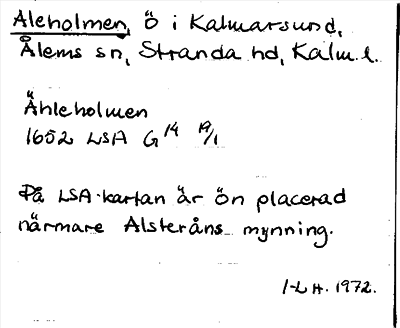 Aleholmen, ö i Kalmarsund,
Ålems sn, Stranda hd, Kalm. l.
Åhleholmen
1652 LSA G 14 19/1
På LSA-kartan är ön placerad
närmare Alsteråns mynning.
I-L H. 1972.